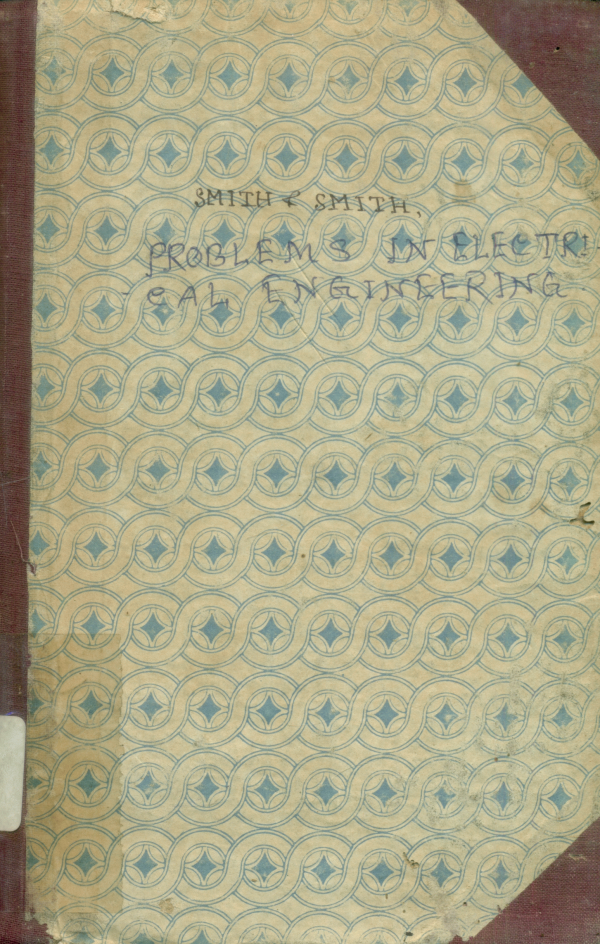 SMITH & SMITH,
PROBLEMS IN ELECTRI-
CAL ENGINEERING